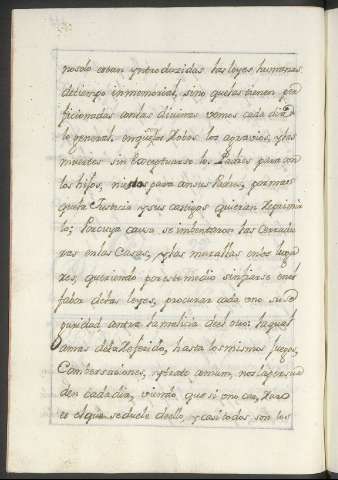 no solo estan yntroduzidas las leyes humanas
de tiempo inmemorial, sino que las tienen per
ficionadas con las divinas vemos cada dia
lo general, en que los Robos los agravios, y las
muertes sin exceptuarse los Padres para con
los hijos, ni estos para con sus Padres, por mas
que la Justicia y sus castigos quieran Reprimir
lo; Por cuya causa se imbentaron las Cerradu
ras en las Casas, y las murallas en los luga
res, queriendo por este medio sin fiarse en el
fabor de las leyes, procurar cada uno su se
guridad contra la malicia de el otro: la qual
a mas de la Referido, hasta los mismos Juegos,
Combersaciones, y trato comun, nos la persua
den cada dia, viendo, que si uno cae, Raro
es el que se duele de ello, y casi todos son los